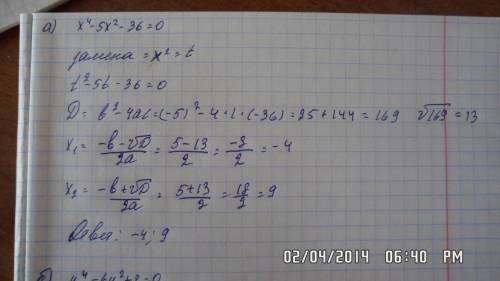 а) x⁴-5x²-36=0
замена = x² = t
t²-5t-36=0
D = b²-4ac = (-5)²-4·1·(-36) = 25+144 = 169 √169 = 13
x₁ = (-b-√D)/2a = (5-13)/2 = -8/2 = -4
x₂ = (-b+√D)/2a = (5+13)/2 = 18/2 = 9
Ответ: -4; 9
02/04/2014 06:40 PM